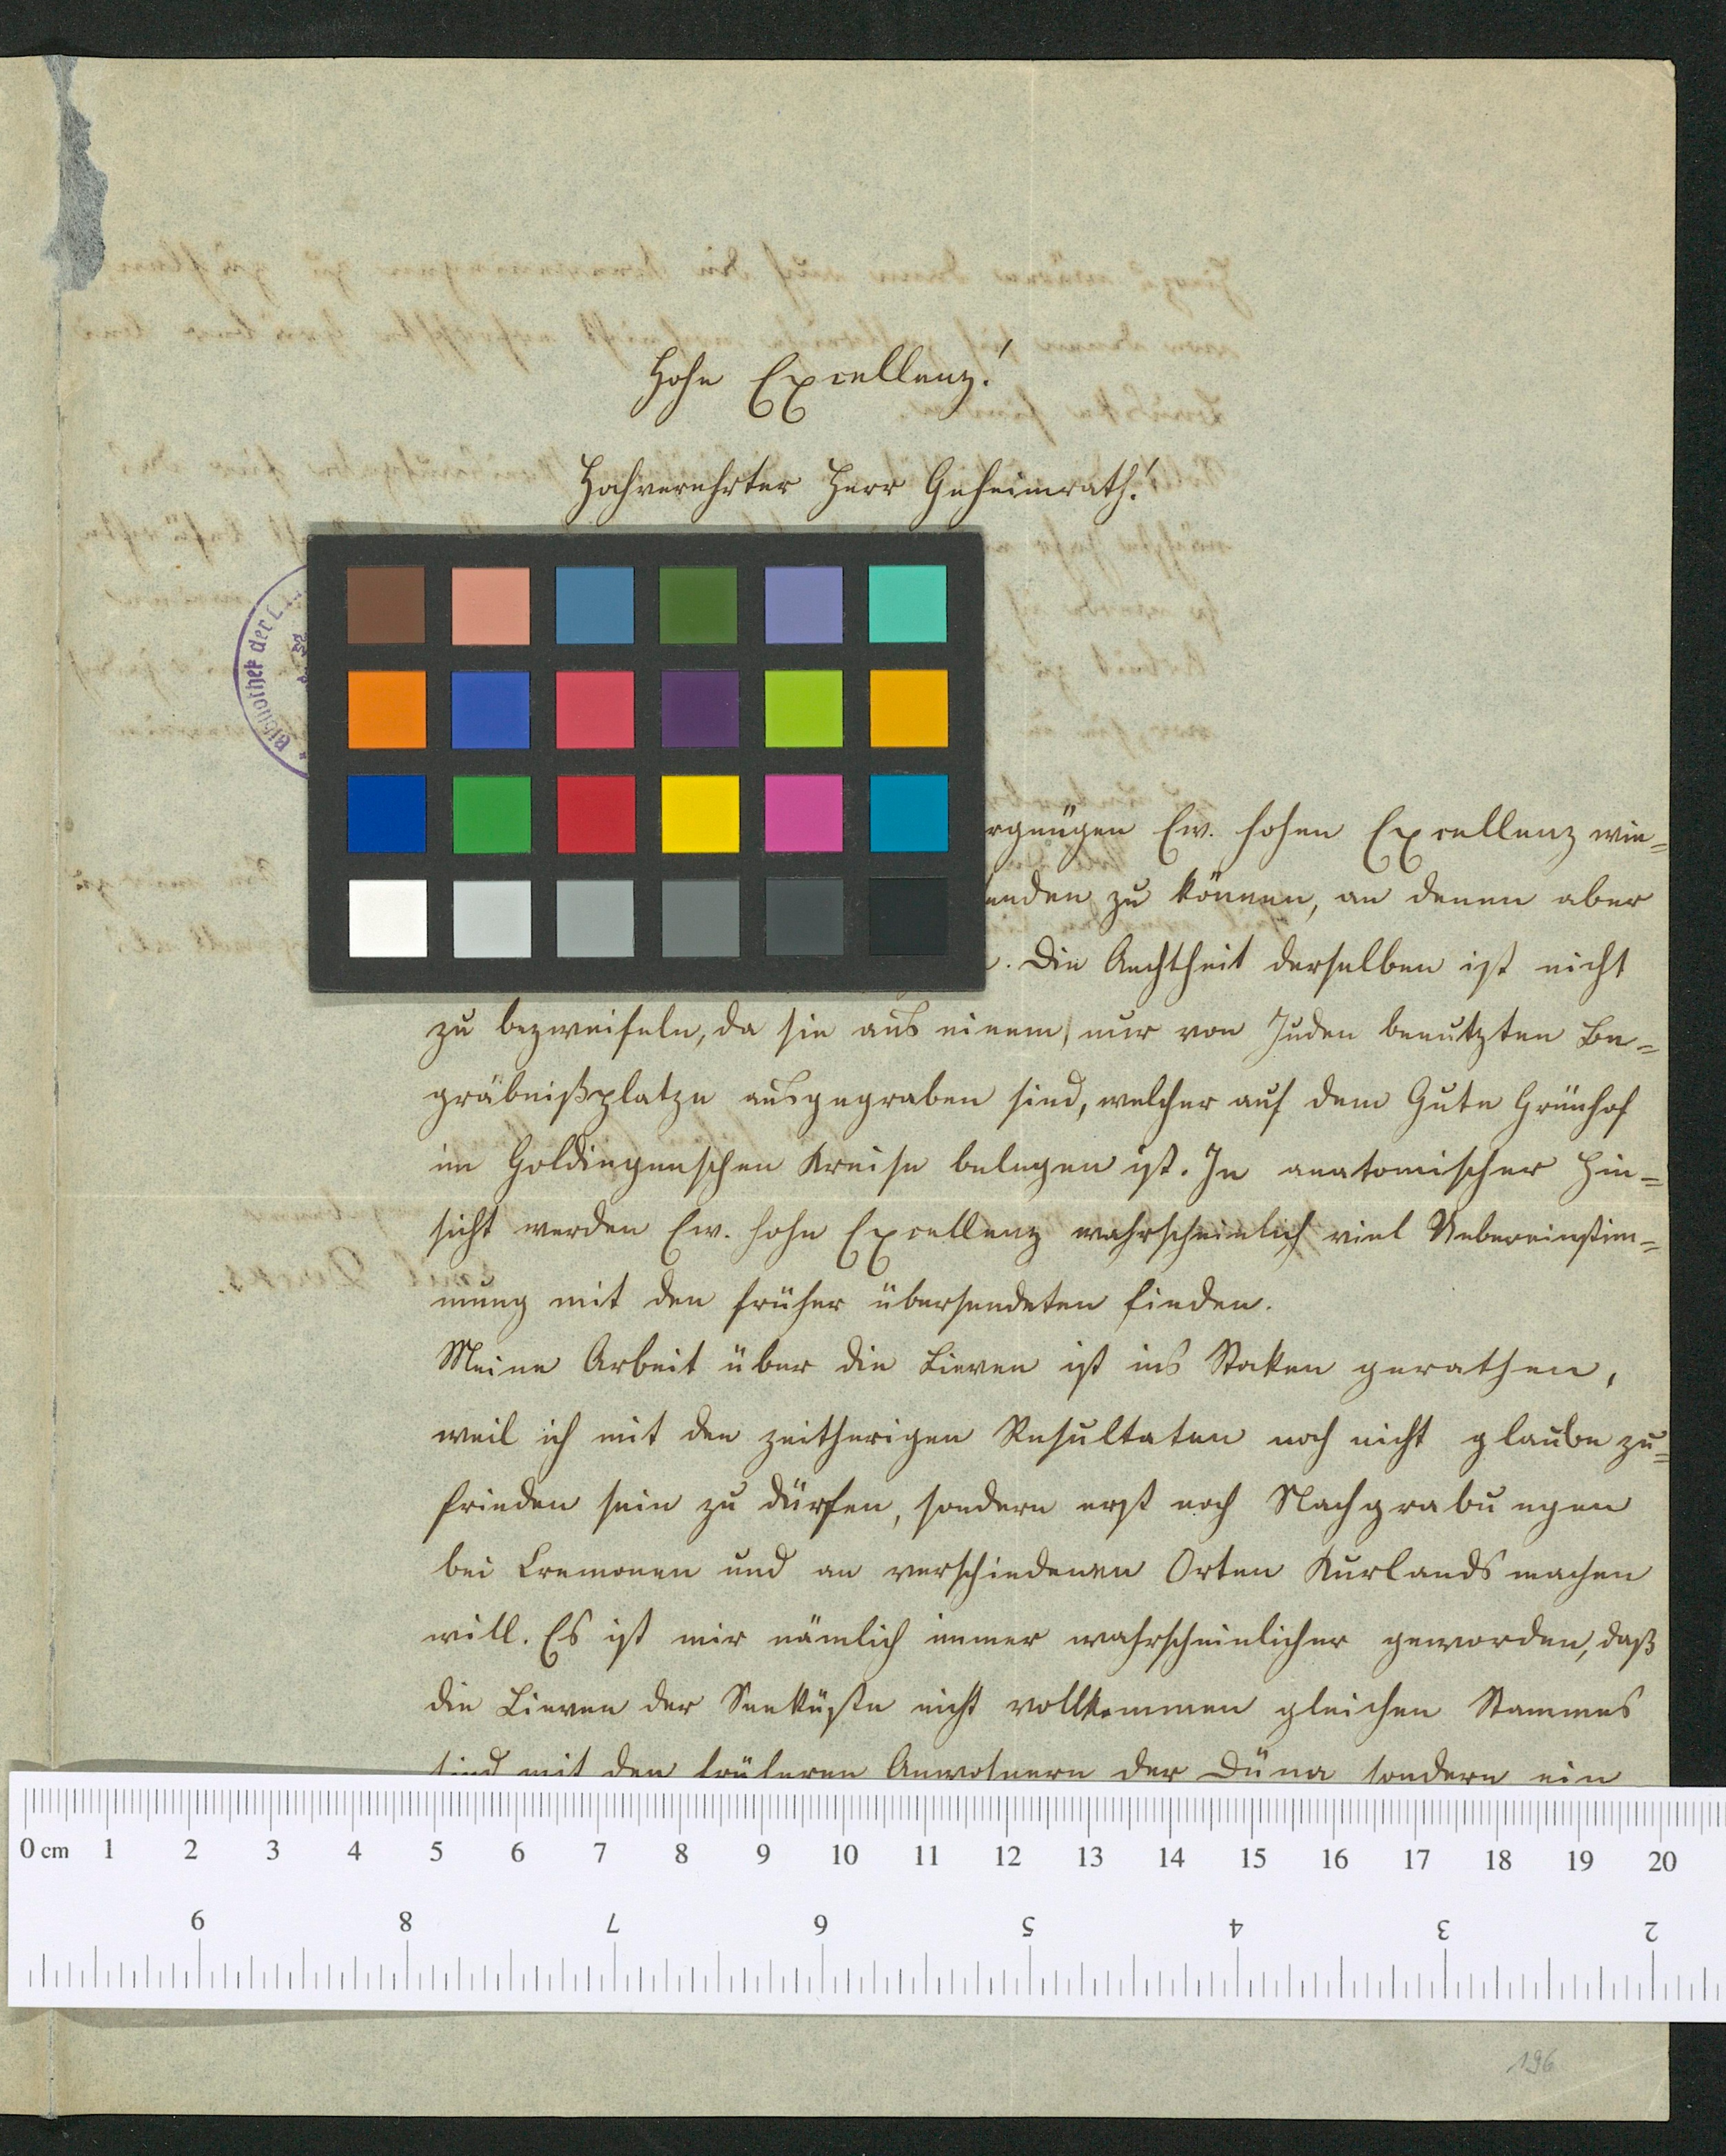 Hohe Excellenz!
Hochverehrter Herr Geheimrath!
Bibliothek der
rgnügen Ew. hohen Excellenz wie=
enden zu können, an denen aber
. Die Aechtheit derselben ist nicht
zu bezweifeln, da sie aus einem, nur von Juden benutzten Be=
gräbnißplatze ausgegraben sind, welcher auf dem Gute Grünhof
im Goldingenschen Kreise belegen ist. In anatomischer Hin=
sicht werden Ew. hohe Excellenz wahrscheinlich viel Uebereinstim=
mung mit den früher übersendeten finden.
Meine Arbeit über die Lieven ist ins Stoken gerathen,
weil ich mit den zeitherigen Resultaten noch nicht glaube zu=
frieden sein zu dürfen, sondern erst noch Nachgrabungen
bei Cremonen und an verschiedenen Orten Kurlands machen
will. Es ist mir nämlich immer wahrscheinlicher geworden, daß
die Lieven der Seeküste nicht vollkommen gleichen Stammes
sind mit den früheren Anwohnern der Düna sondern ein
0 cm 1 2 3 4 5 6 7 8 9 10 11 12 13 14 15 16 17 18 19 20
9 8 7 6 5 4 3 2
196